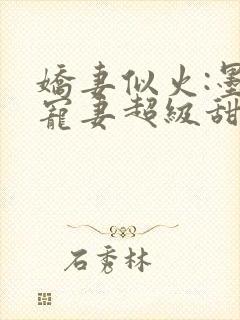 嬌妻似火:墨
寵妻超級甜
石秀林